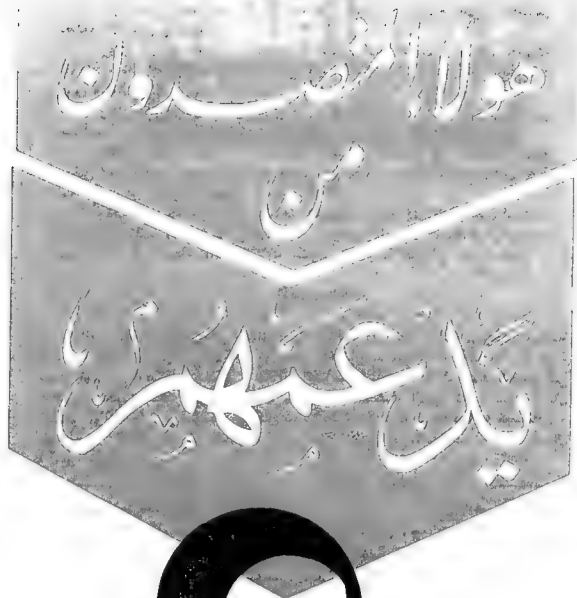 هولا المفسدون
من
يدعمهم